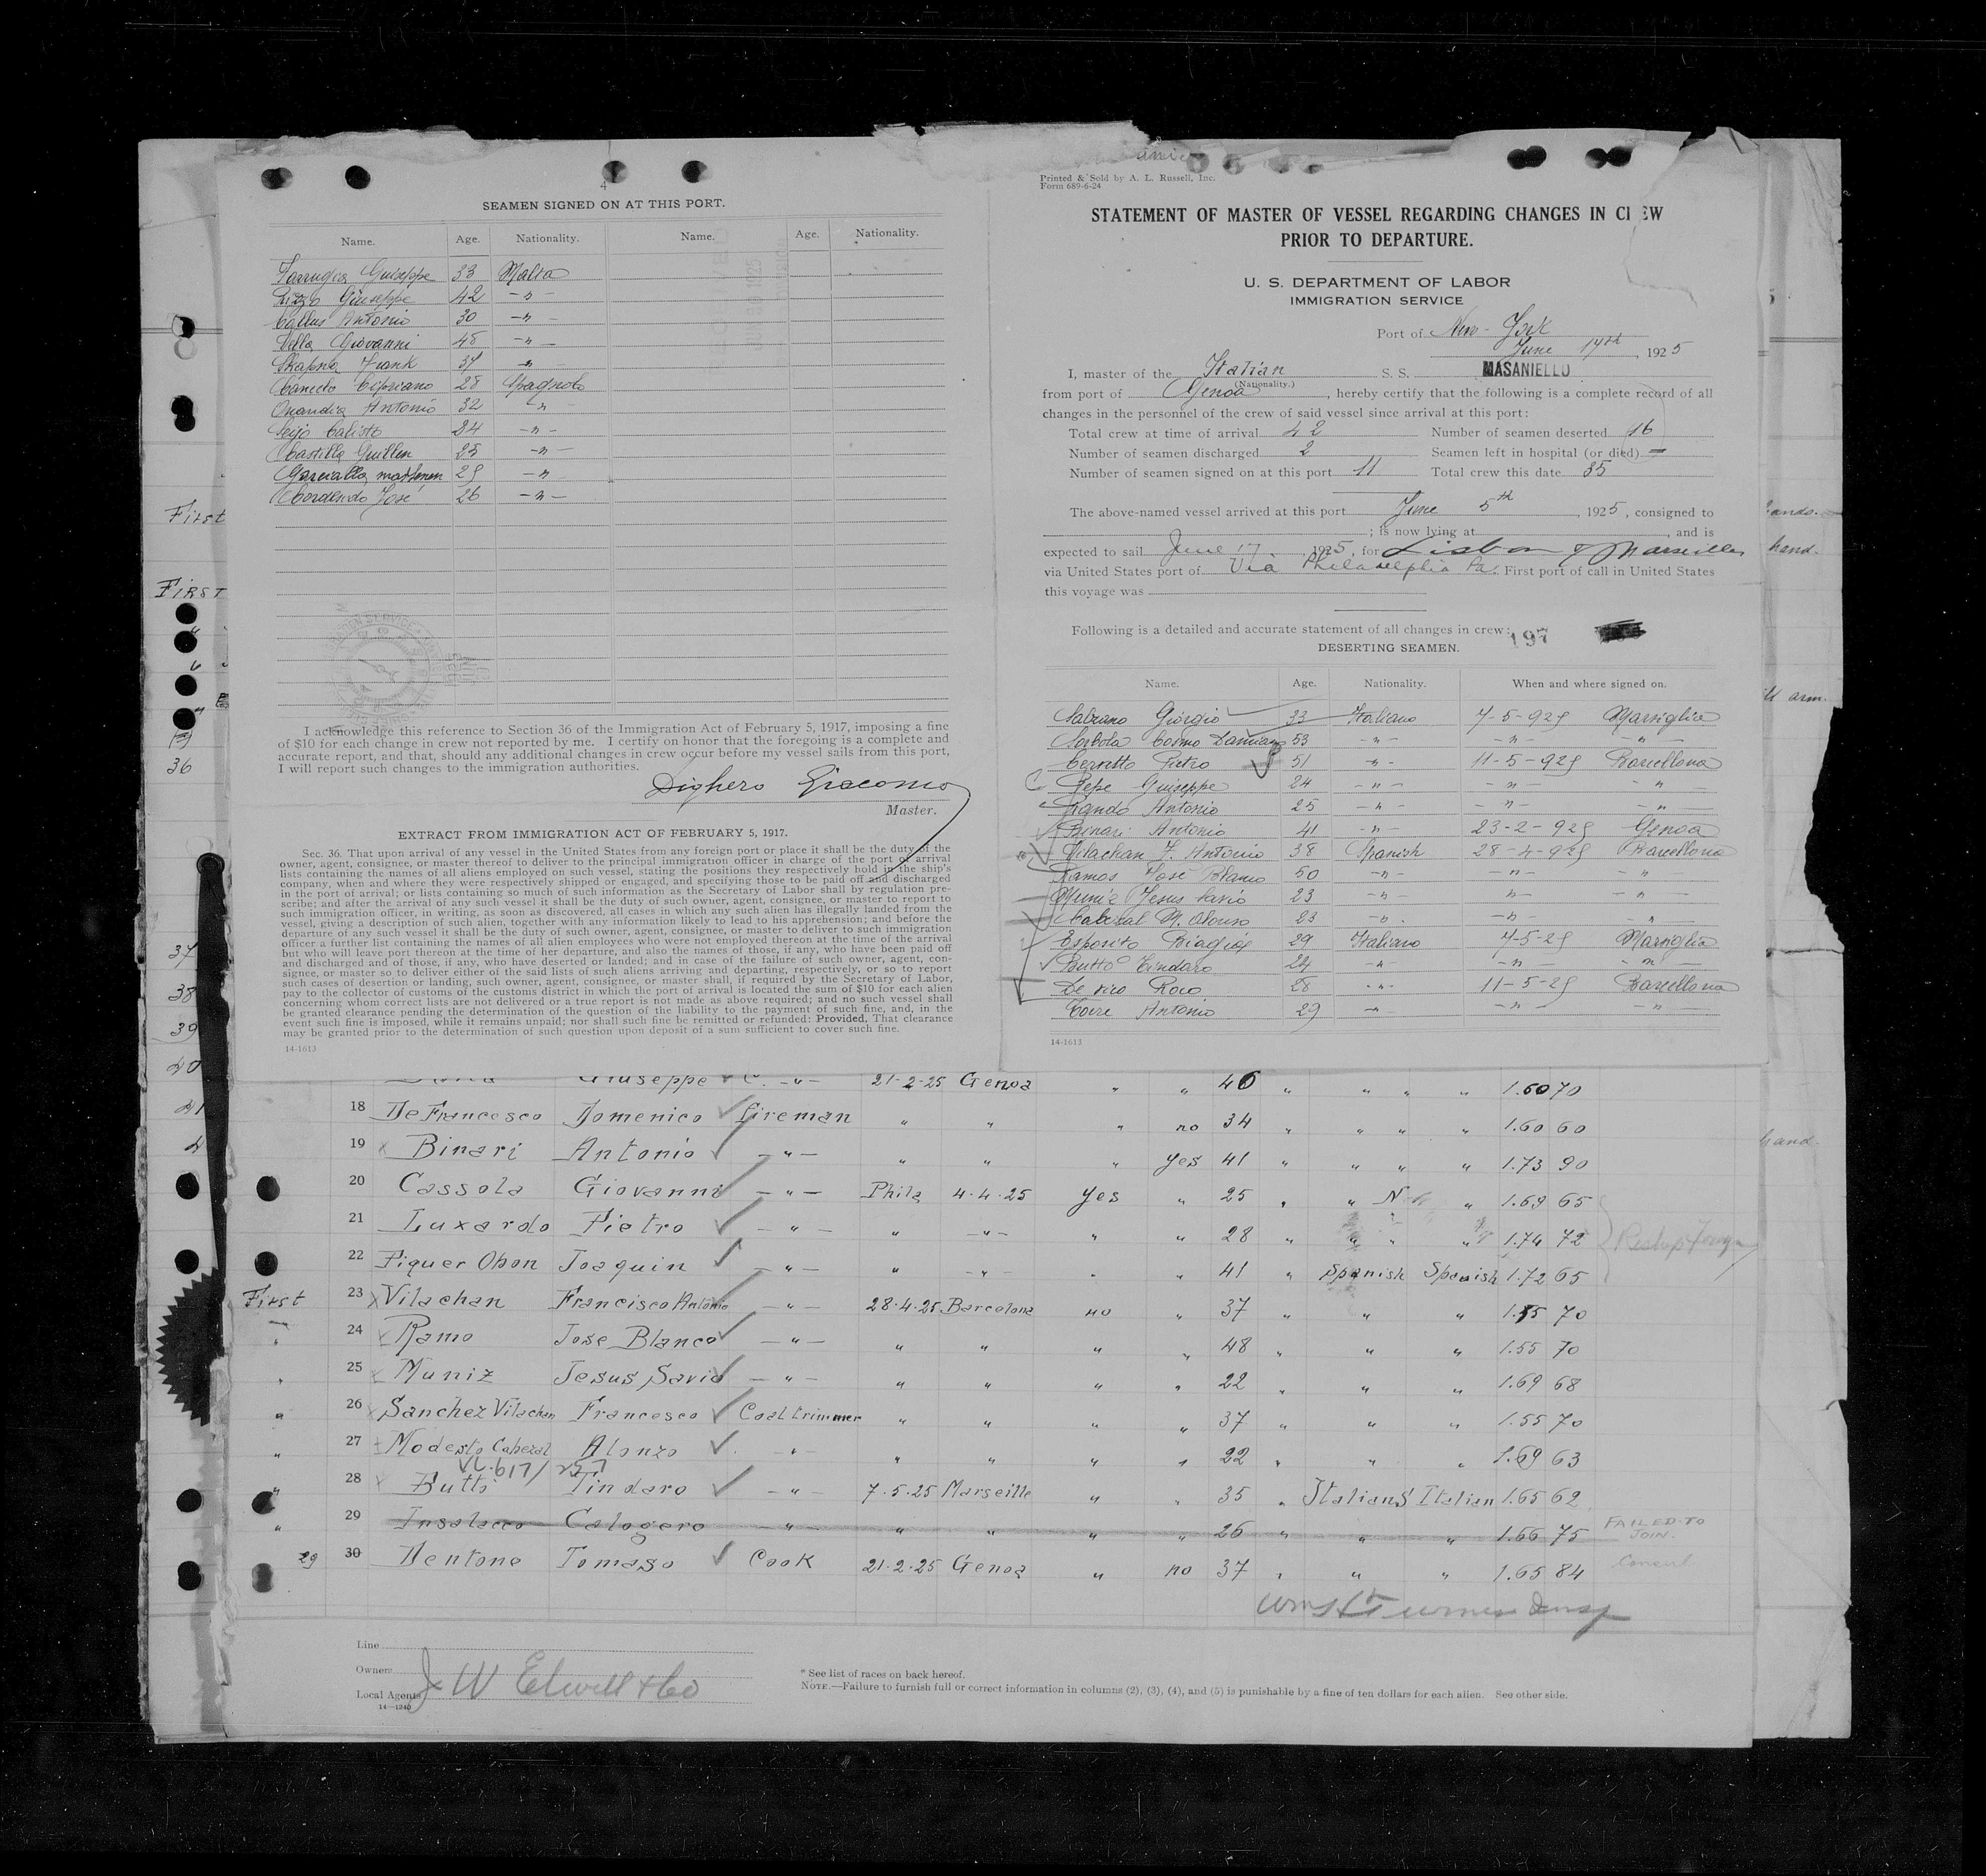 4
SEAMEN SIGNED ON AT THIS PORT.
Name. Age. Nationality. Name. Age. Nationality.
Giuseppe 33 Malta
Rizzo Giuseppe 42 -"-
Callus Antonio 30 -"-
Vella Giovanni 48 -"-
Frank 37 -"-
Canedo Cipriano 28 Spagnolo
Antonio 32 -"-
Seijo Calisto 24 -"-
Castilla Guillen 25 -"-
29 -"-
José 26 -"-
I acknowledge this reference to Section 36 of the Immigration Act of February 5, 1917, imposing a fine
of $10 for each change in crew not reported by me. I certify on honor that the foregoing is a complete and
accurate report, and that, should any additional changes in crew occur before my vessel sails from this port,
I will report such changes to the immigration authorities.
Dighero Giacomo
Master.
EXTRACT FROM IMMIGRATION ACT OF FEBRUARY 5, 1917.
Sec. 36. That upon arrival of any vessel in the United States from any foreign port or place it shall be the duty of the
owner, agent, consignee, or master thereof to deliver to the principal immigration officer in charge of the port of arrival
lists containing the names of all aliens employed on such vessel, stating the positions they respectively hold in the ship's
company, when and where they were respectively shipped or engaged, and specifying those to be paid off and discharged
in the port of arrival; or lists containing so much of such information as the Secretary of Labor shall by regulation pre-
scribe; and after the arrival of any such vessel it shall be the duty of such owner, agent, consignee, or master to report to
such immigration officer, in writing, as soon as discovered, all cases in which any such alien has illegally landed from the
vessel, giving a description of such alien, together with any information likely to lead to his apprehension; and before the
departure of any such vessel it shall be the duty of such owner, agent, consignee, or master to deliver to such immigration
officer a further list containing the names of all alien employees who were not employed thereon at the time of the arrival
but who will leave port thereon at the time of her departure, and also the names of those, if any, who have been paid off
and discharged and of those, if any, who have deserted or landed; and in case of the failure of such owner, agent, con-
signee, or master so to deliver either of the said lists of such aliens arriving and departing, respectively, or so to report
such cases of desertion or landing, such owner, agent, consignee, or master, shall, if required by the Secretary of Labor,
pay to the collector of customs of the customs district in which the port of arrival is located the sum of $10 for each alien
concerning whom correct lists are not delivered or a true report is not made as above required; and no such vessel shall
be granted clearance pending the determination of the question of the liability to the payment of such fine, and, in the
event such fine is imposed, while it remains unpaid; nor shall such fine be remitted or refunded: Provided, That clearance
may be granted prior to the determination of such question upon deposit of a sum sufficient to cover such fine.
14-1613
Printed & Sold by A. L. Russell, Inc.
Form 689-6-24
STATEMENT OF MASTER OF VESSEL REGARDING CHANGES IN CREW
PRIOR TO DEPARTURE.
U. S. DEPARTMENT OF LABOR
IMMIGRATION SERVICE
Port of New-York
June 17th, 1925
I, master of the Italian S. S. MASANIELLO
(Nationality.)
from port of Genoa, hereby certify that the following is a complete record of all
changes in the personnel of the crew of said vessel since arrival at this port:
Total crew at time of arrival 42 Number of seamen deserted 16
Number of seamen discharged 2 Seamen left in hospital (or died) -
Number of seamen signed on at this port 11 Total crew this date 35
The above-named vessel arrived at this port June 5th, 1925, consigned to
; is now lying at , and is
expected to sail June 17, 1925, for Lisbon & Marseilles
via United States port of Via Philadelphia Pa. First port of call in United States
this voyage was
Following is a detailed and accurate statement of all changes in crew:
197
DESERTING SEAMEN.
Name. Age. Nationality. When and where signed on.
Salzano Giorgio 33 Italiano 7-5-925 Marsiglia
Sorbola Cosmo Damiano 53 -"- -"- -"-
Cerretto Pietro 51 -"- 11-5-925 Barcellona
Pepe Giuseppe 24 -"- -"- -"-
Antonio 25 -"- -"- -"-
Binari Antonio 41 -"- 23-2-925 Genoa
Vilachan F. Antonio 38 Spanish 28-4-925 Barcellona
Ramos José Blanco 50 -"- -"- -"-
Muniz Jesus Savio 23 -"- -"- -"-
Cabezal M. Alonso 23 -"- -"- -"-
Esposito Biagio 29 Italiano 7-5-25 Marsiglia
Butto Tindaro 24 -"- -"- -"-
De vico Roco 28 -"- 11-5-25 Barcellona
Torre Antonio 29 -"- -"- -"-
14-1613
Giuseppe C. -"- 21-2-25 Genoa " " 40 " " " " 1.60 70
18 DeFrancesco Domenico fireman " " " no 34 " " " " 1.60 60
19 Binari Antonio -"- " " " yes 41 " " " " 1.73 90
20 Cassola Giovanni -"- Phila 4.4.25 yes " 25 " " N " 1.69 65
21 Luxardo Pietro -"- " -"- " " 28 " " " " 1.74 72
22 Piquer Obon Joaquin -"- " -"- " " 41 " Spanish Spanish 1.72 65
First 23 Vilachan Francisco Antonio -"- 28.4.25 Barcelona no " 37 " " " 1.55 70
" 24 Ramo Jose Blanco -"- " " " " 48 " " " 1.55 70
" 25 Muniz Jesus Savio -"- " " " " 22 " " " 1.69 68
" 26 Sanchez Vilachan Francesco Coal trimmer " " " " 37 " " " 1.55 70
" 27 Modesto Cabezal Alonzo -"- " " " " 22 " " " 1.69 63
" 28 Butti Tindaro -"- 7.5.25 Marseille " " 35 " Italian S Italian 1.65 62
" 29 Insalacco Calogero -"- " " " " 26 " " " 1.66 75 FAILED TO JOIN.
29 30 Dentone Tomaso Cook 21.2.25 Genoa " no 37 " " " 1.65 84 Consul
Line
Owners
Local Agents J W Elwell & Co
14-1240
* See list of races on back hereof.
NOTE.—Failure to furnish full or correct information in columns (2), (3), (4), and (5) is punishable by a fine of ten dollars for each alien. See other side.
First
FIRST
36
37
38
39
40
41
hands.
hand.
arm.
hand.